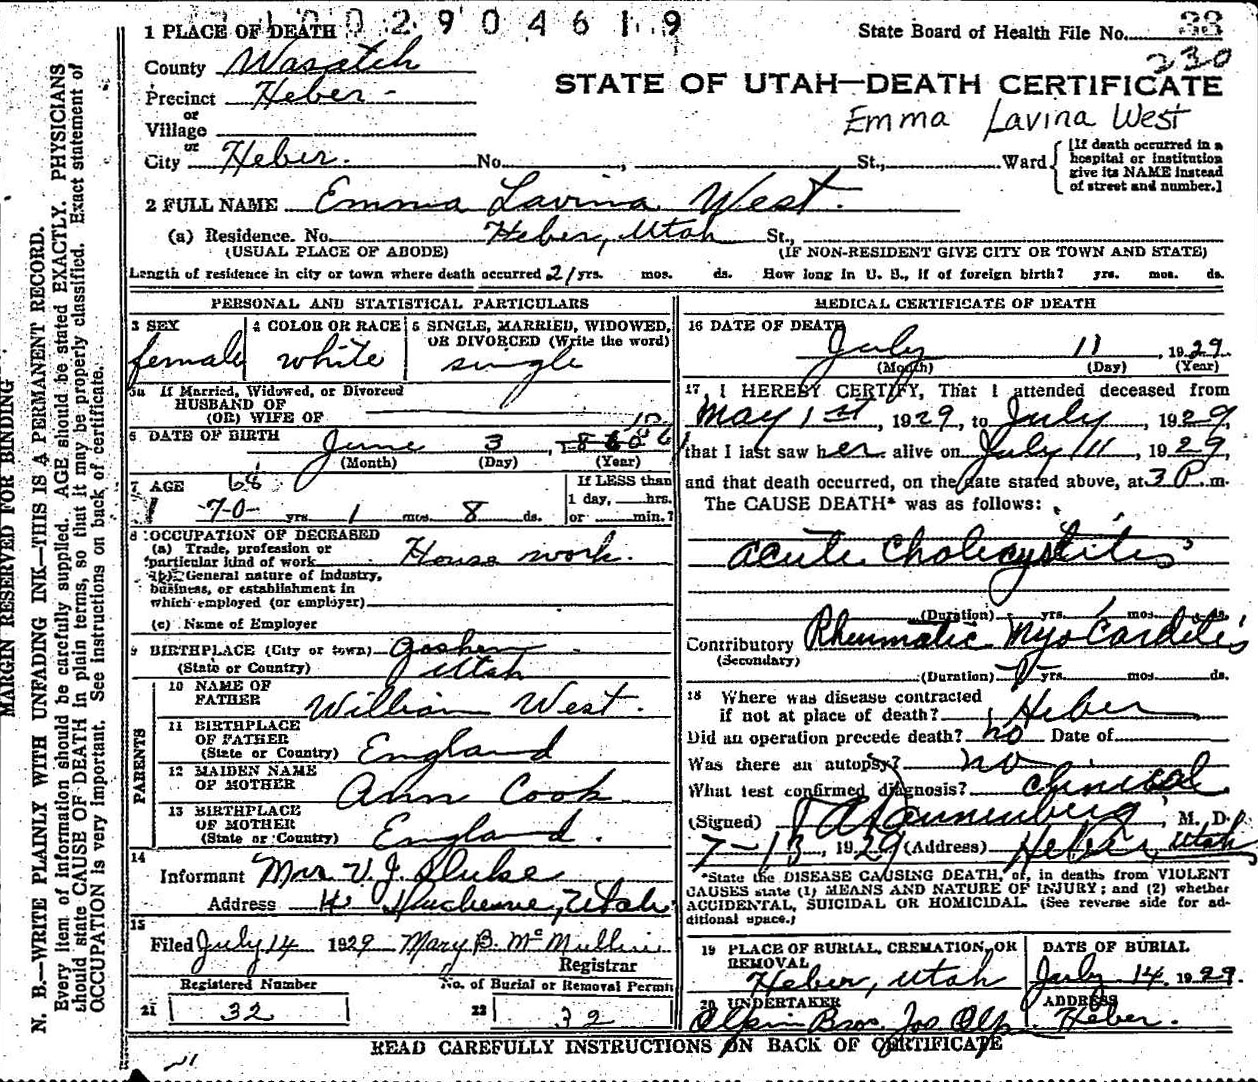 1 PLACE OF DEATH 0 0 2 9 0 4 6 1 9
State Board of Health File No. 33
230
County Wasatch
STATE OF UTAH—DEATH CERTIFICATE
Precinct Heber
or
Village
Emma Lavina West
or
City Heber. No. , St., Ward
[If death occurred in a
hospital or institution
give its NAME instead
of street and number.]
2 FULL NAME Emma Lavina West.
(a) Residence. No. Heber, Utah St.,
(USUAL PLACE OF ABODE) (IF NON-RESIDENT GIVE CITY OR TOWN AND STATE)
Length of residence in city or town where death occurred 21 yrs. mos. ds. How long in U. S., if of foreign birth? yrs. mos. ds.
PERSONAL AND STATISTICAL PARTICULARS
3 SEX
female
4 COLOR OR RACE
white
5 SINGLE, MARRIED, WIDOWED,
OR DIVORCED (Write the word)
single
5a If Married, Widowed, or Divorced
HUSBAND OF
(OR) WIFE OF
6 DATE OF BIRTH June 3
(Month) (Day) (Year)
7 AGE 68
70 yrs. 1 mos. 8 ds.
If LESS than
1 day, hrs.
or min.?
8 OCCUPATION OF DECEASED
(a) Trade, profession or
particular kind of work House work.
(b) General nature of industry,
business, or establishment in
which employed (or employer)
(c) Name of Employer
9 BIRTHPLACE (City or town) Goshen
(State or Country) Utah
PARENTS
10 NAME OF
FATHER William West.
11 BIRTHPLACE
OF FATHER
(State or Country) England
12 MAIDEN NAME
OF MOTHER Ann Cook
13 BIRTHPLACE
OF MOTHER
(State or Country) England.
14
Informant Mrs V. J.
Address Duchesne, Utah
15
Filed July 14 1929 Mary B. McMullin
Registrar
Registered Number
21 32
No. of Burial or Removal Permit
22 32
MEDICAL CERTIFICATE OF DEATH
16 DATE OF DEATH
July 11, 1929
(Month) (Day) (Year)
17 I HEREBY CERTIFY, That I attended deceased from
May 1st, 1929, to July, 1929,
that I last saw her alive on July 11, 1929,
and that death occurred, on the date stated above, at 3 P. m.
The CAUSE DEATH* was as follows:
Acute Cholecystitis
(Duration) yrs. mos. ds.
Contributory Rheumatic Myocarditis
(Secondary)
(Duration) yrs. mos. ds.
18 Where was disease contracted
if not at place of death? Heber
Did an operation precede death? no Date of
Was there an autopsy? no
What test confirmed diagnosis? Clinical
(Signed) Dannenberg, M. D.
7-13, 1929 (Address) Heber, Utah
*State the DISEASE CAUSING DEATH, or, in deaths from VIOLENT
CAUSES state (1) MEANS AND NATURE OF INJURY; and (2) whether
ACCIDENTAL, SUICIDAL OR HOMICIDAL. (See reverse side for ad-
ditional space.)
19 PLACE OF BURIAL, CREMATION, OR
REMOVAL
Heber, Utah
DATE OF BURIAL
July 14, 1929.
20 UNDERTAKER
Olpin Bros. Jos Olpin
ADDRESS
Heber.
READ CAREFULLY INSTRUCTIONS ON BACK OF CERTIFICATE
MARGIN RESERVED FOR BINDING
N. B.—WRITE PLAINLY WITH UNFADING INK—THIS IS A PERMANENT RECORD.
Every item of information should be carefully supplied. AGE should be stated EXACTLY. PHYSICIANS
should state CAUSE OF DEATH in plain terms, so that it may be properly classified. Exact statement of
OCCUPATION is very important. See instructions on back of certificate.